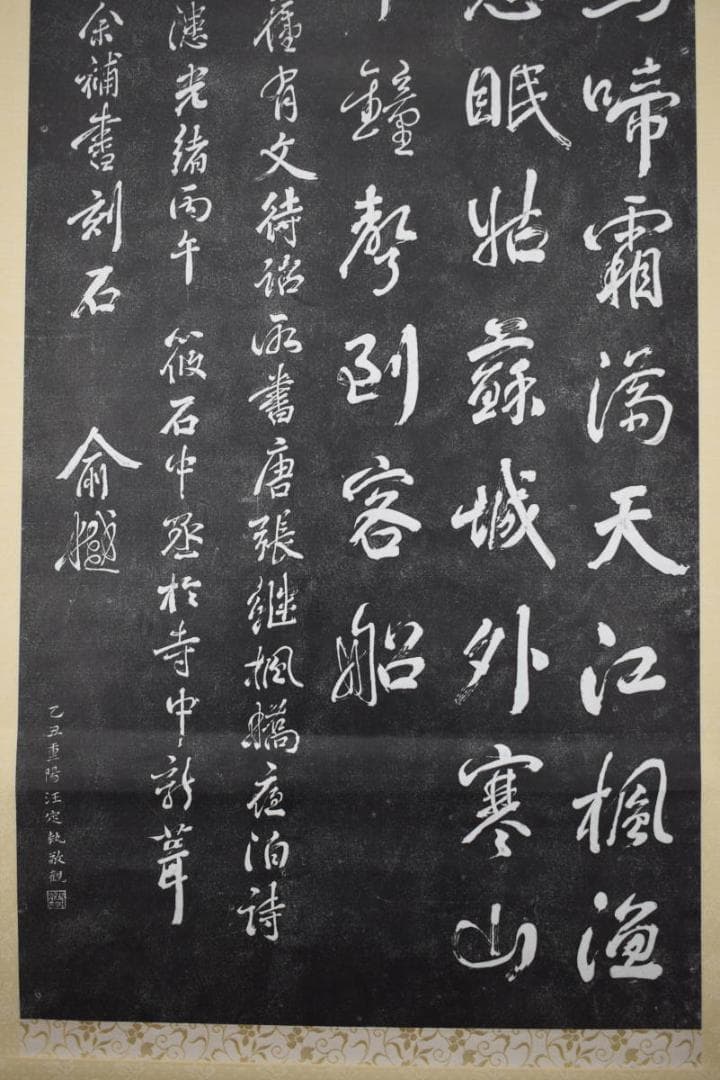 啼霜滿天江楓漁
眠姑蘇城外寒山
鐘聲到客船
舊有文待詔所書唐張繼楓橋夜泊詩
漶光緒丙午筱石中丞於寺中新葺
余補書刻石 俞樾
乙丑重陽汪定執敬觀